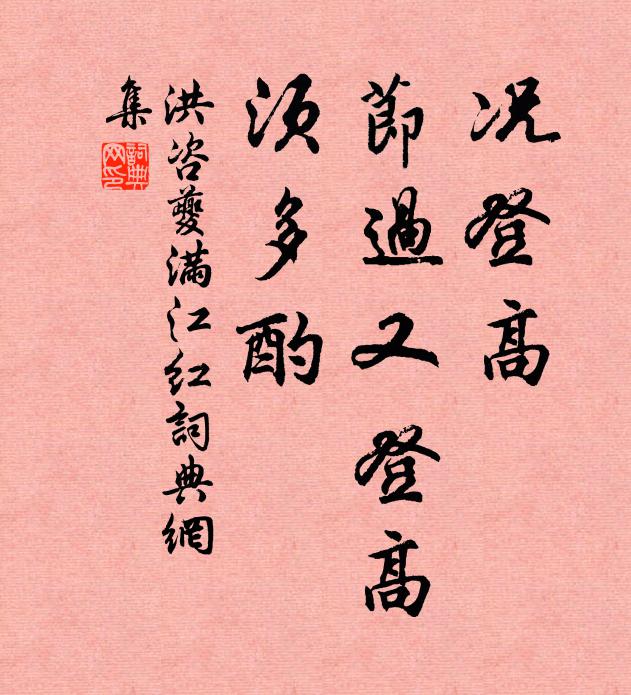 况登高
節過又登高
須多酌
洪咨夔滿江紅詞典網
集
詞典網印